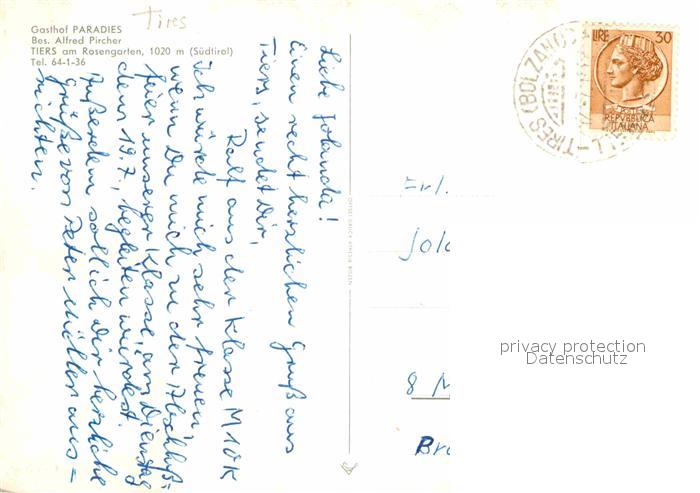 Tires
Gasthof PARADIES
Bes. Alfred Pircher
TIERS am Rosengarten, 1020 m (Südtirol)
Tel. 64-1-36
Liebe Jolanda!
Einen recht herzlichen Gruß aus
Tiers, sendet Dir,
Ralf aus der Klasse M10K
Ich würde mich sehr freuen
wenn Du mich zu der Abschluß-
feier unserer Klasse, am Dienstag
dem 19.7., begleiten würdest.
Außerdem soll ich Dir herzliche
Grüße von Peter Müller aus=
richten.
LIRE 30
POSTE
REPVBBLICA
ITALIANA
TIRES (BOLZANO)
Frl.
Jola
8 M
Br
privacy protection
Datenschutz